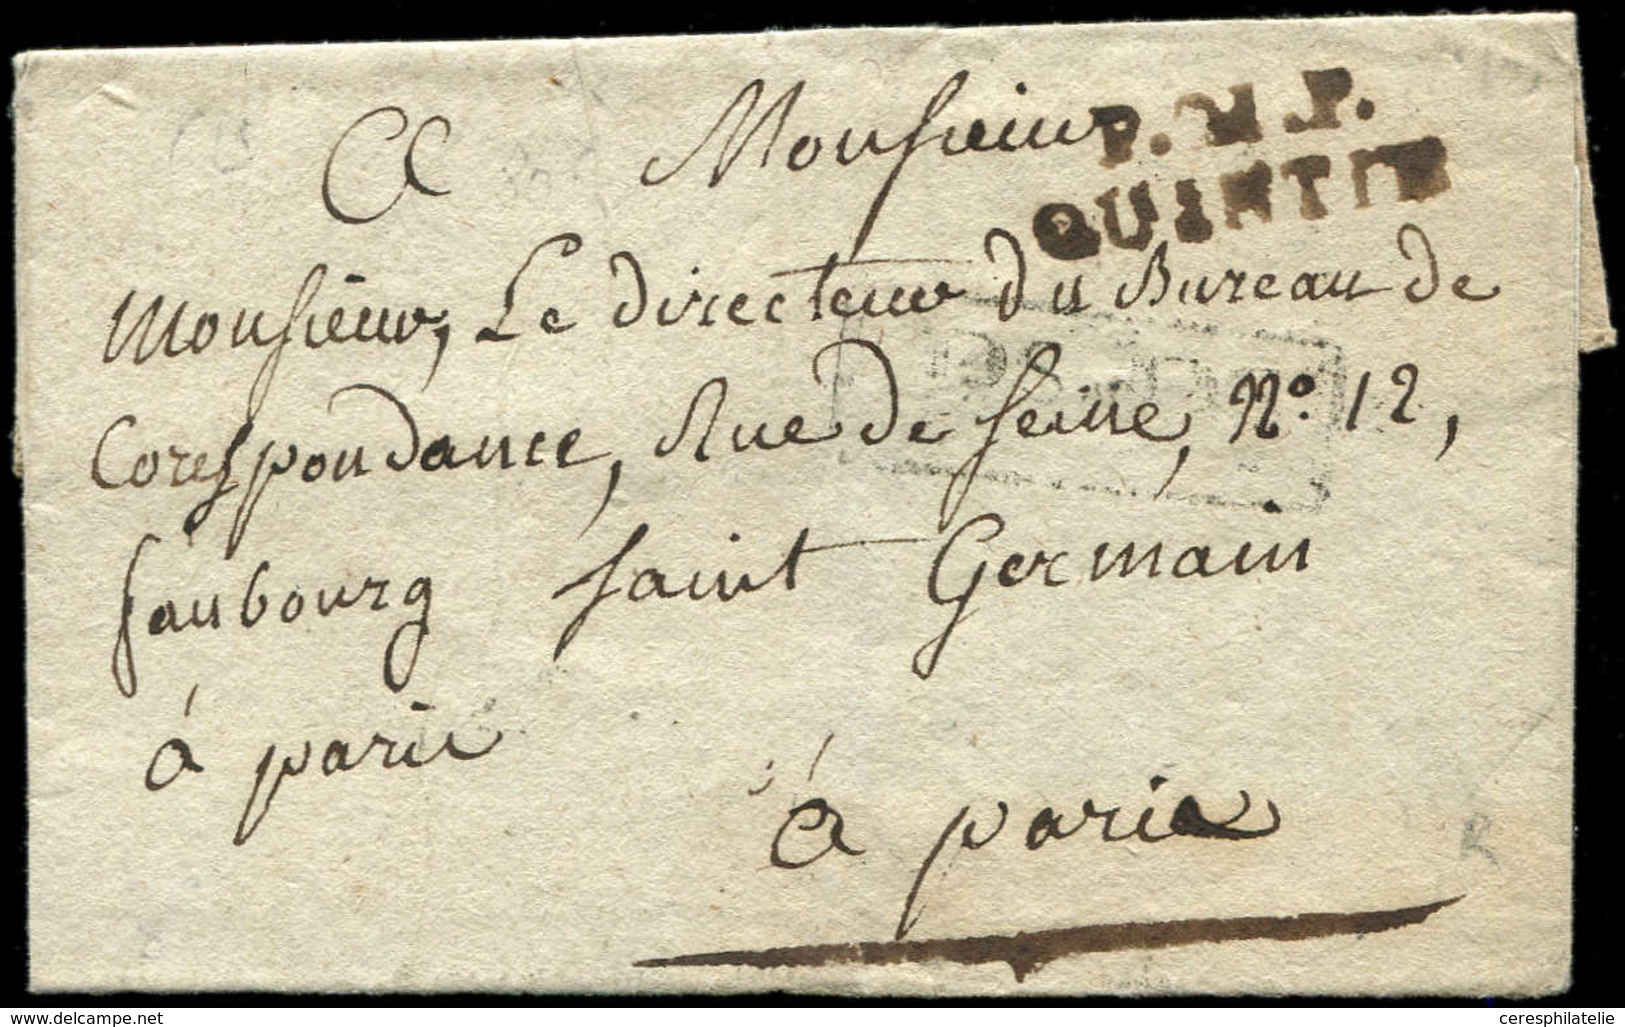 A Monsieur
P. P. P.
QUINTIN
Monsieur, Le directeur du Bureau de
Corespondance, Rue de Seine, N° 12,
faubourg Saint Germain
à paris
à paris
R
www.delcampe.net
ceresphilatelie